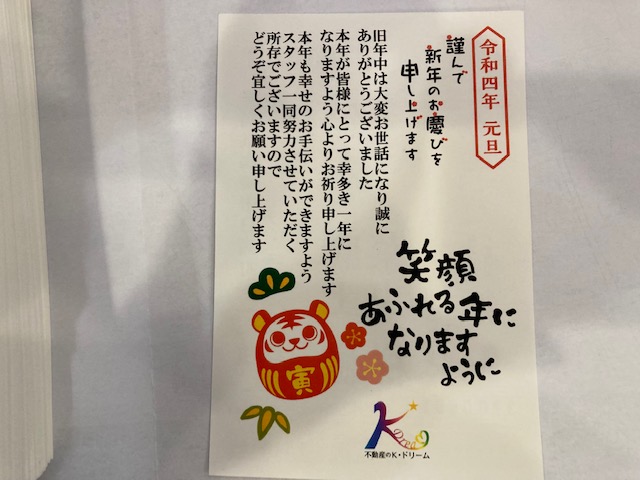 令和四年 元旦
謹んで
新年のお慶びを
申し上げます
旧年中は大変お世話になり誠に
ありがとうございました
本年が皆様にとって幸多き一年に
なりますよう心よりお祈り申し上げます
本年も幸せのお手伝いができますよう
スタッフ一同努力させていただく
所存でございますので
どうぞ宜しくお願い申し上げます
笑顔
あふれる年に
なります
ように
寅
K Dream
不動産のK・ドリーム